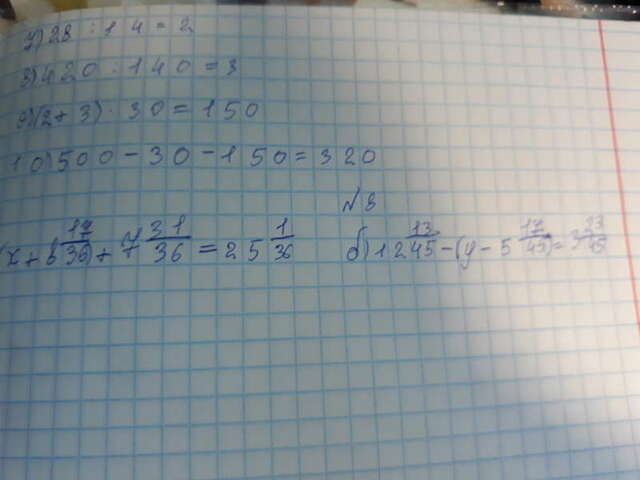 7) 28 : 14 = 2
8) 420 : 140 = 3
9) (2 + 3) · 30 = 150
10) 500 - 30 - 150 = 320
№ 8
(x + 6 17/36) + 7 31/36 = 25 1/36 б) 12 13/45 - (y - 5 17/45) = 3 23/45